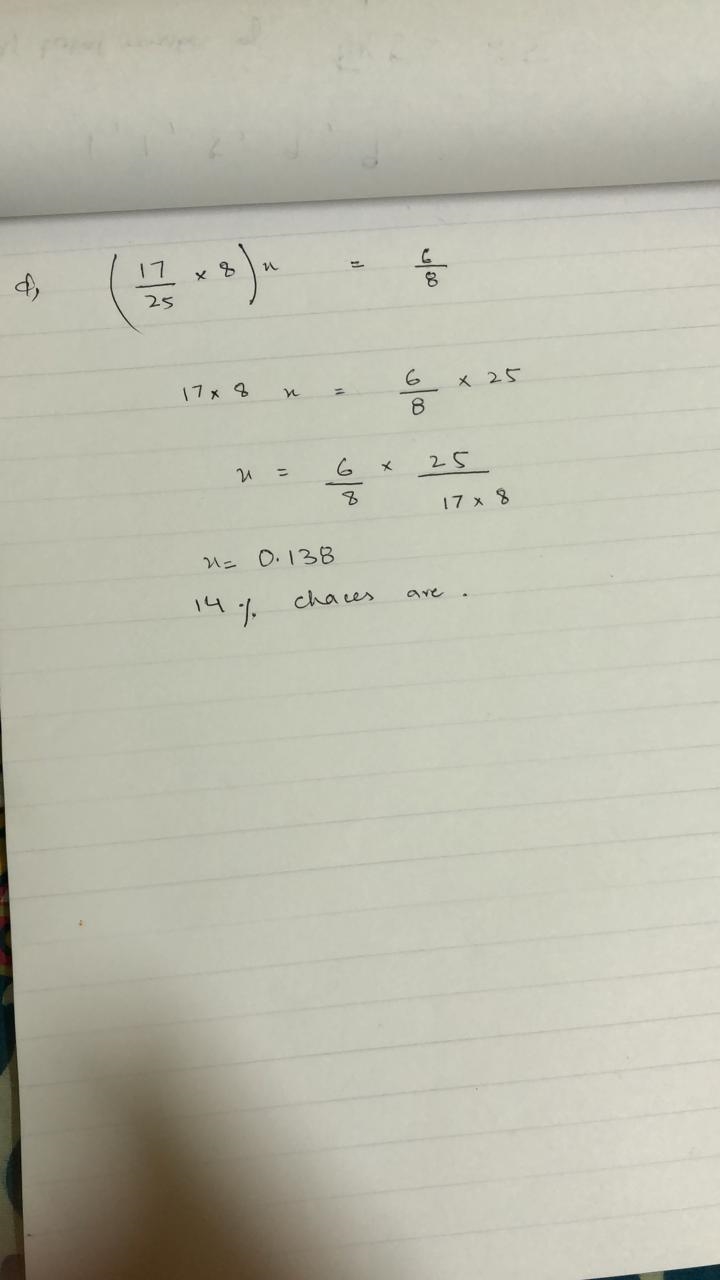 d, (17/25 × 8) x = 6/8
17 × 8 x = 6/8 × 25
x = 6/8 × 25/(17 × 8)
x = 0.138
14 % chaces are .